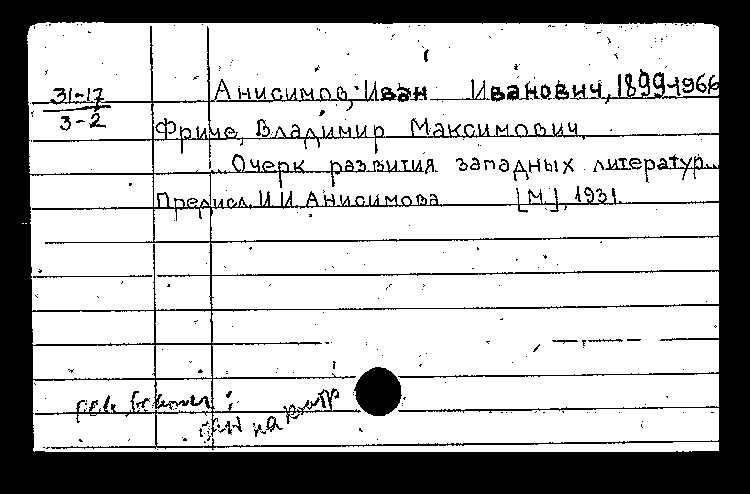 Анисимов, Иван Иванович, 1899-1966
31-17
3-2
Фриче, Владимир Максимович.
... Очерк развития западных литератур...
Предисл. И.И. Анисимова [М.], 1931.
на контр